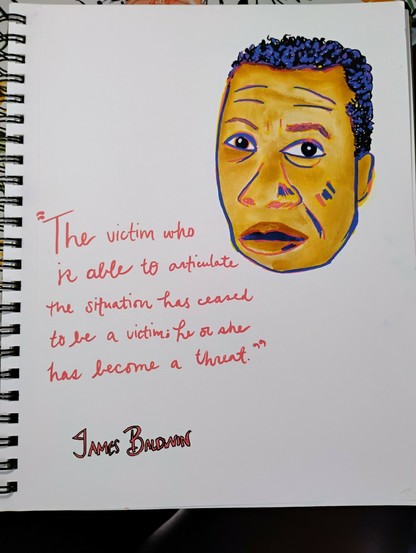 "The victim who
is able to articulate
the situation has ceased
to be a victim; he or she
has become a threat."
James Baldwin